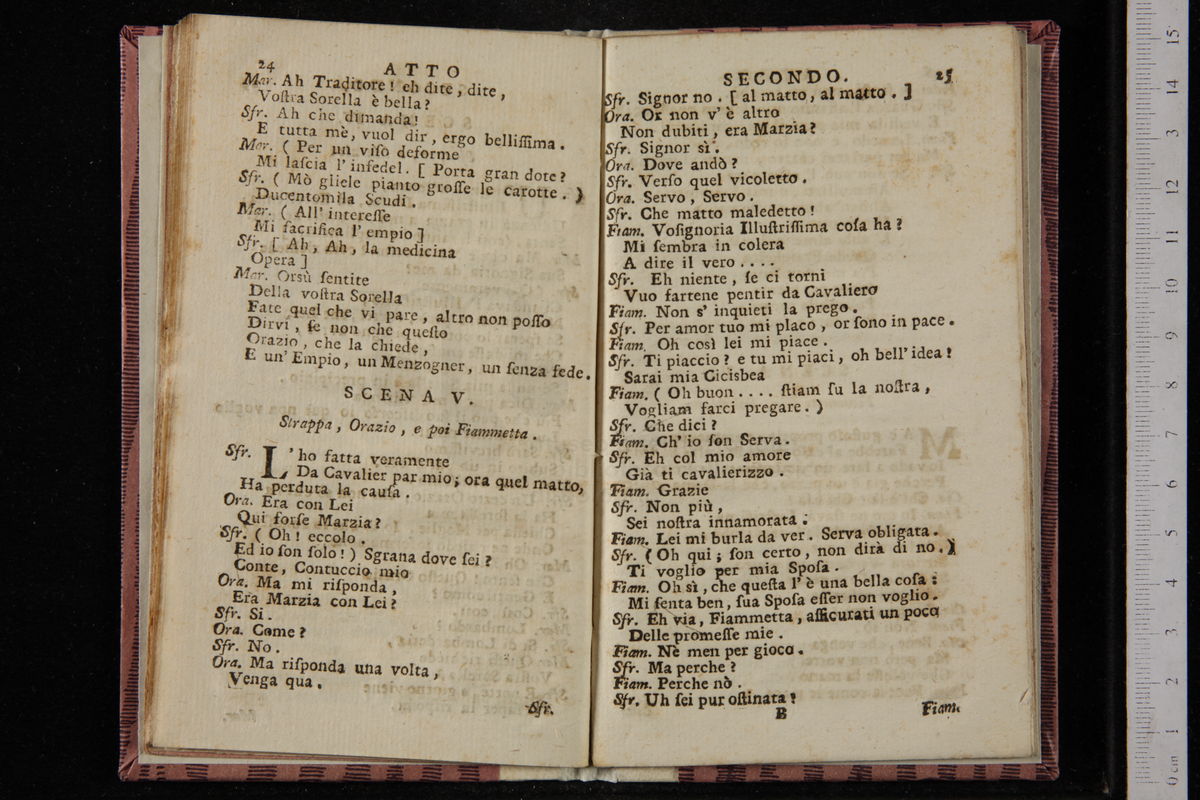 24 ATTO
Mar. Ah Traditore! eh dite, dite,
Voſtra Sorella è bella?
Sfr. Ah che dimanda!
E tutta mè, vuol dir, ergo belliſſima.
Mar. ( Per un viſo deforme
Mi laſcia l' infedel. [ Porta gran dote?
Sfr. ( Mò gliele pianto groſſe le carotte. )
Ducentomila Scudi.
Mar. ( All' intereſſe
Mi ſacrifica l' empio ]
Sfr. [ Ah, Ah, la medicina
Opera ]
Mar. Orsù ſentite
Della voſtra Sorella
Fate quel che vi pare, altro non poſſo
Dirvi, ſe non che queſto
Orazio, che la chiede,
E un' Empio, un Menzogner, un ſenza fede.
SCENA V.
Strappa, Orazio, e poi Fiammetta.
Sfr. L' ho fatta veramente
Da Cavalier par mio; ora quel matto,
Ha perduta la cauſa.
Ora. Era con Lei
Qui forſe Marzia?
Sfr. ( Oh! eccolo.
Ed io ſon ſolo! ) Sgrana dove ſei?
Conte, Contuccio mio
Ora. Ma mi riſponda,
Era Marzia con Lei?
Sfr. Si.
Ora. Come?
Sfr. No.
Ora. Ma riſponda una volta,
Venga qua.
Sfr.
SECONDO. 25
Sfr. Signor no. [ al matto, al matto. ]
Ora. Or non v' è altro
Non dubiti, era Marzia?
Sfr. Signor sì.
Ora. Dove andò?
Sfr. Verſo quel vicoletto.
Ora. Servo, Servo.
Sfr. Che matto maledetto!
Fiam. Voſignoria Illuſtriſſima coſa ha?
Mi ſembra in colera
A dire il vero....
Sfr. Eh niente, ſe ci torni
Vuo fartene pentir da Cavaliero
Fiam. Non s' inquieti la prego.
Sfr. Per amor tuo mi placo, or ſono in pace.
Fiam. Oh così lei mi piace.
Sfr. Ti piaccio? e tu mi piaci, oh bell' idea!
Sarai mia Cicisbea
Fiam. ( Oh buon.... ſtiam ſu la noſtra,
Vogliam farci pregare. )
Sfr. Che dici?
Fiam. Ch' io ſon Serva.
Sfr. Eh col mio amore
Già ti cavalierizzo.
Fiam. Grazie
Sfr. Non più,
Sei noſtra innamorata.
Fiam. Lei mi burla da ver. Serva obligata.
Sfr. ( Oh qui; ſon certo, non dirà di no. )
Ti voglio per mia Spoſa.
Fiam. Oh sì, che queſta l' è una bella coſa:
Mi ſenta ben, ſua Spoſa eſſer non voglio.
Sfr. Eh via, Fiammetta, aſſicurati un poco
Delle promeſſe mie.
Fiam. Nè men per gioco.
Sfr. Ma perche?
Fiam. Perche nò.
Sfr. Uh ſei pur oſtinata!
B Fiam.